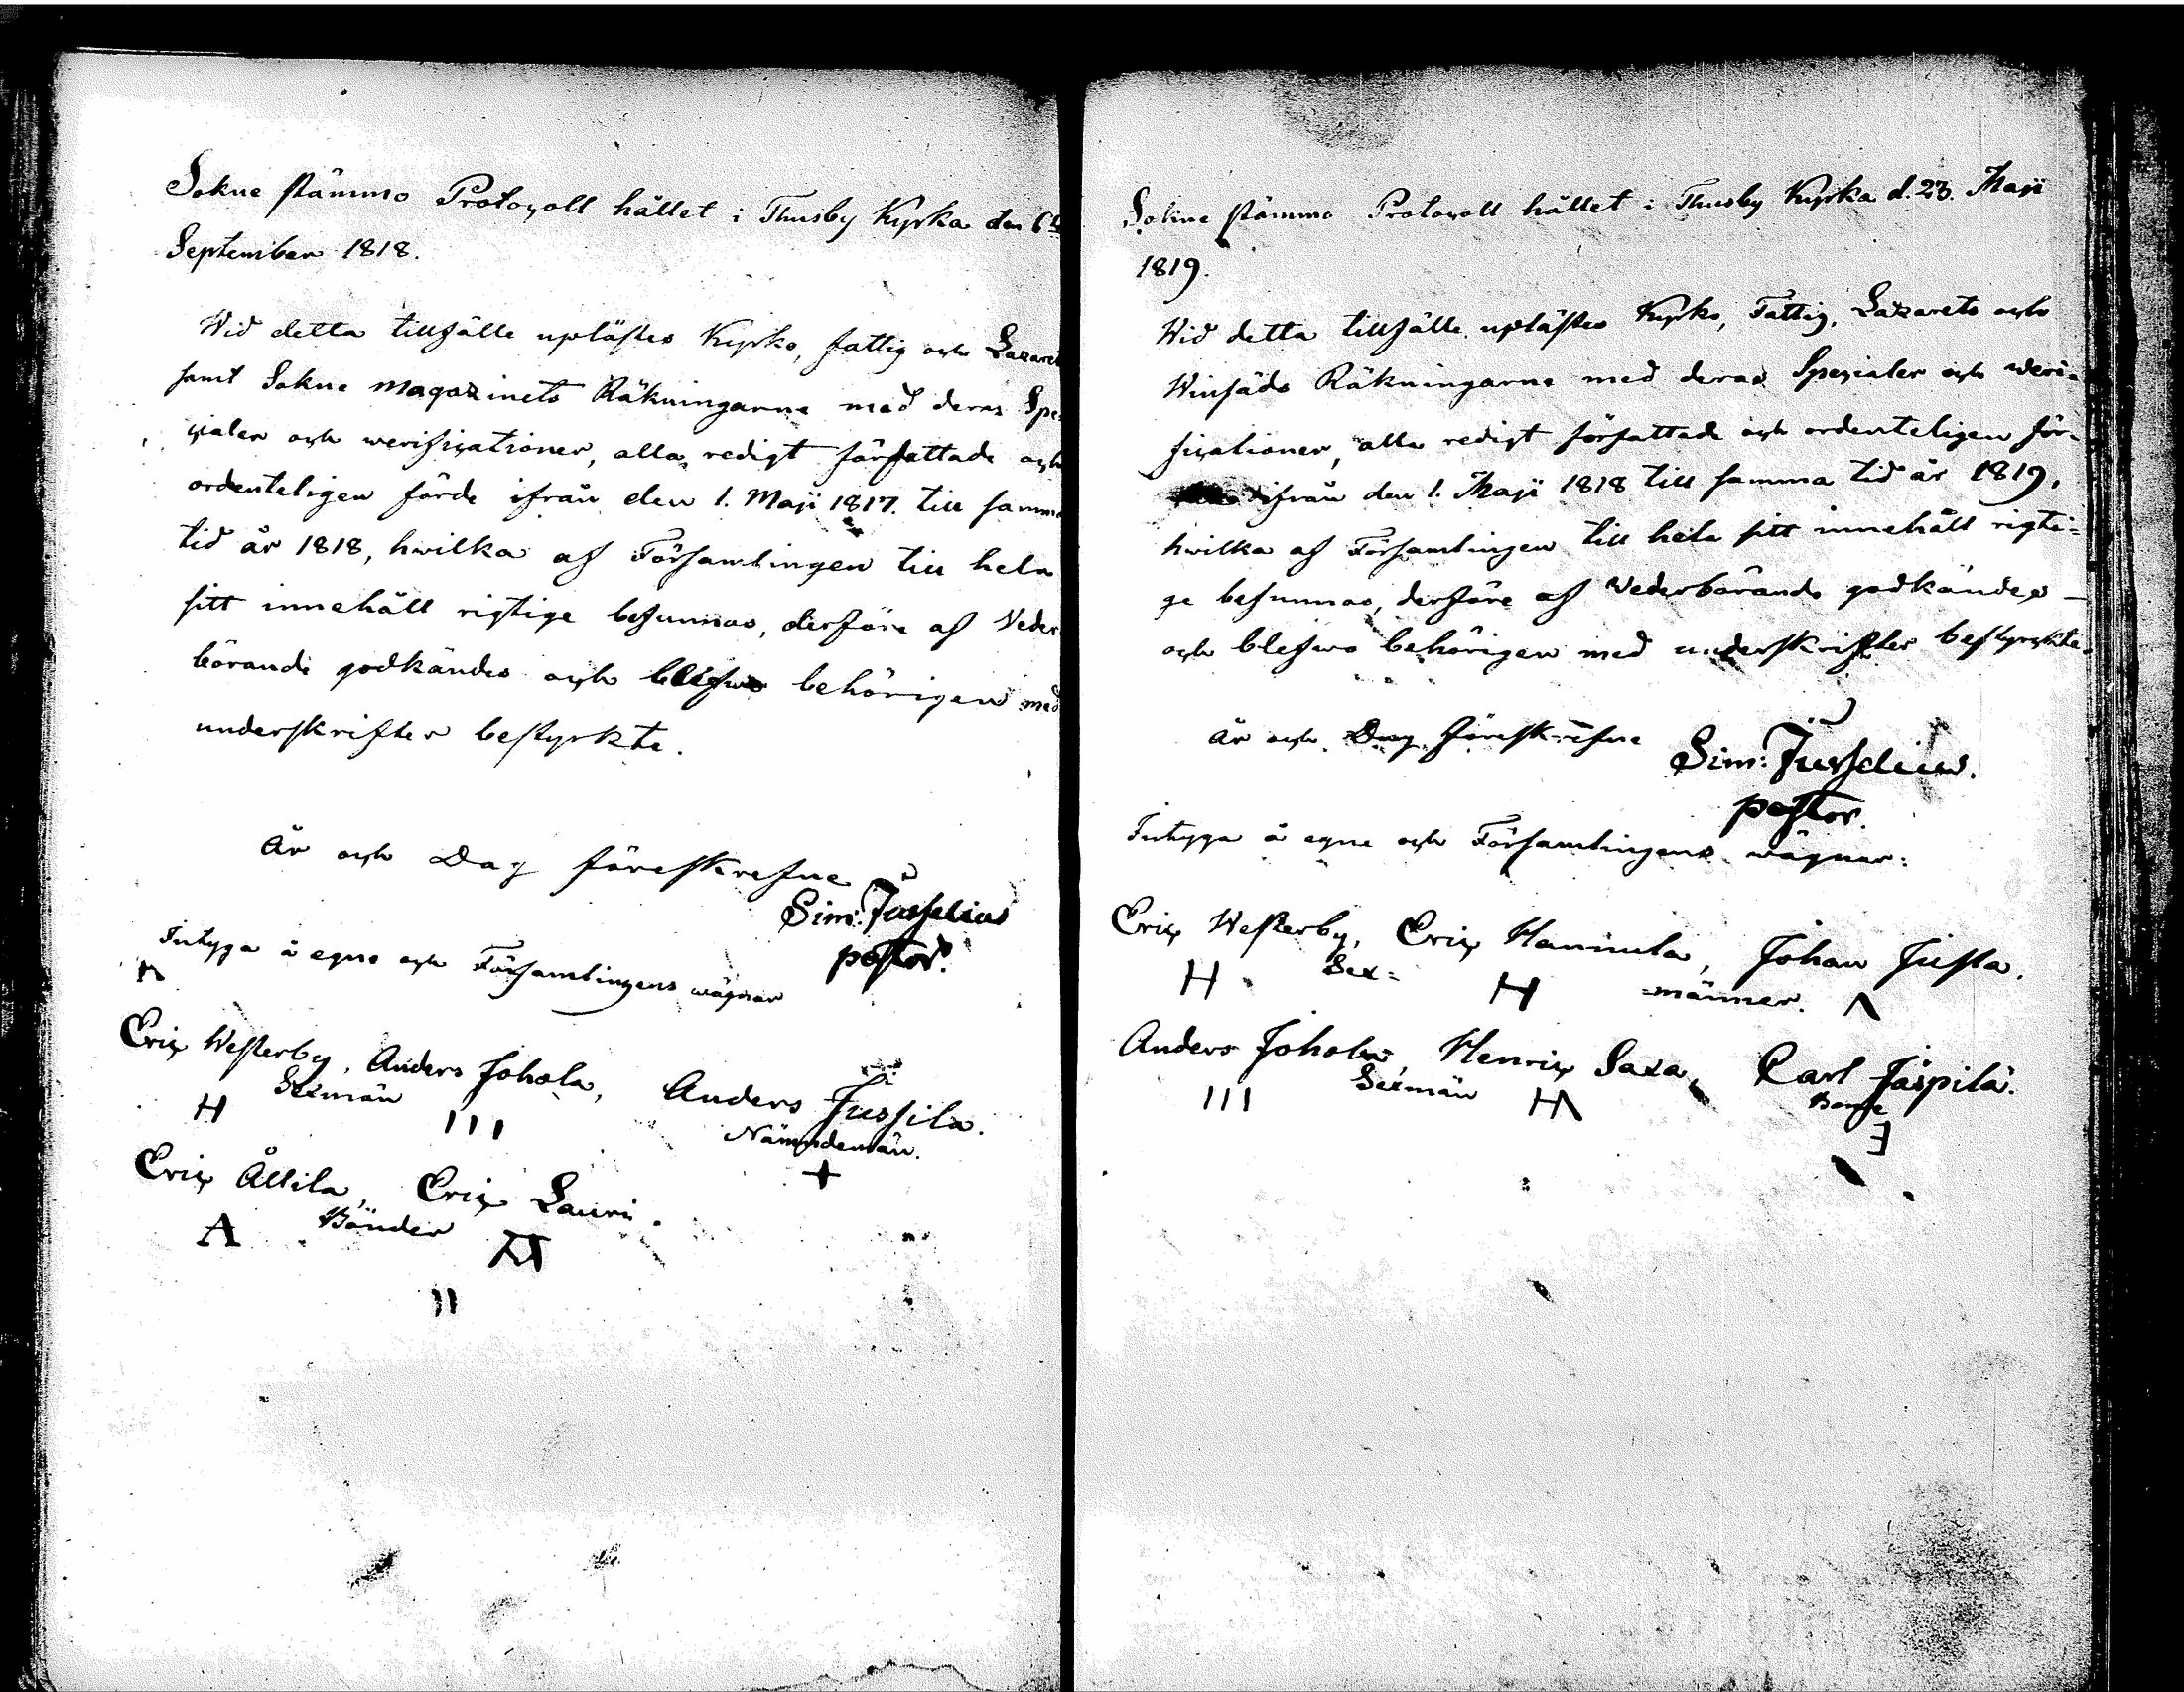 Sokne stämmo Protocoll hållet i Thusby Kyrka den 6te
September 1818.
Wid detta tillfälle uplästes Kyrko, fattig och Lazaret
samt Sokne Magazinets Räkningarne med deras Spe=
cialer och verificationer, alla redigt författade och
ordenteligen förde ifrån den 1. Maji 1817. till samma
tid år 1818, hwilka af Församlingen till hela
sitt innehåll rigtige befunnos, derföre af Veder
börande godkändes och blefwo behörigen med
underskrifter bestyrkte.
År och Dag föreskrefne
Sim: Jusselius
pastor.
Intyga å egne och Församlingens wägnar
Eric Westerby, Anders Johola, Anders Jussila.
Sexmän
Nämndemän.
H III +
Eric Ållila, Eric Lauri.
A Bönder
Sokne stämmo Protocoll hållet i Thusby Kyrka d. 23. Maji
1819.
Wid detta tillfälle uplästes Kyrko, Fattig, Lazarets och
Winfäds Räkningarne med deras Specialer och veri=
ficationer, alla redigt författade och ordenteligen för=
ifrån den 1. Maji 1818 till samma tid år 1819,
hwilka af Församlingen till hela sitt innehåll rigti=
ge befunnos, derföre af Vederbörande godkändes
och blefwo behörigen med underskrifter bestyrkte.
År och Dag föreskrefne
Sim: Jusselius.
pastor.
Intyga å egne och Församlingens wägnar:
Eric Westerby, Eric Hannula, Johan Jusla.
H Sex= H =männer.
Anders Johola, Henric Saxa, Carl Jäspilä.
III Sexmän Bonde